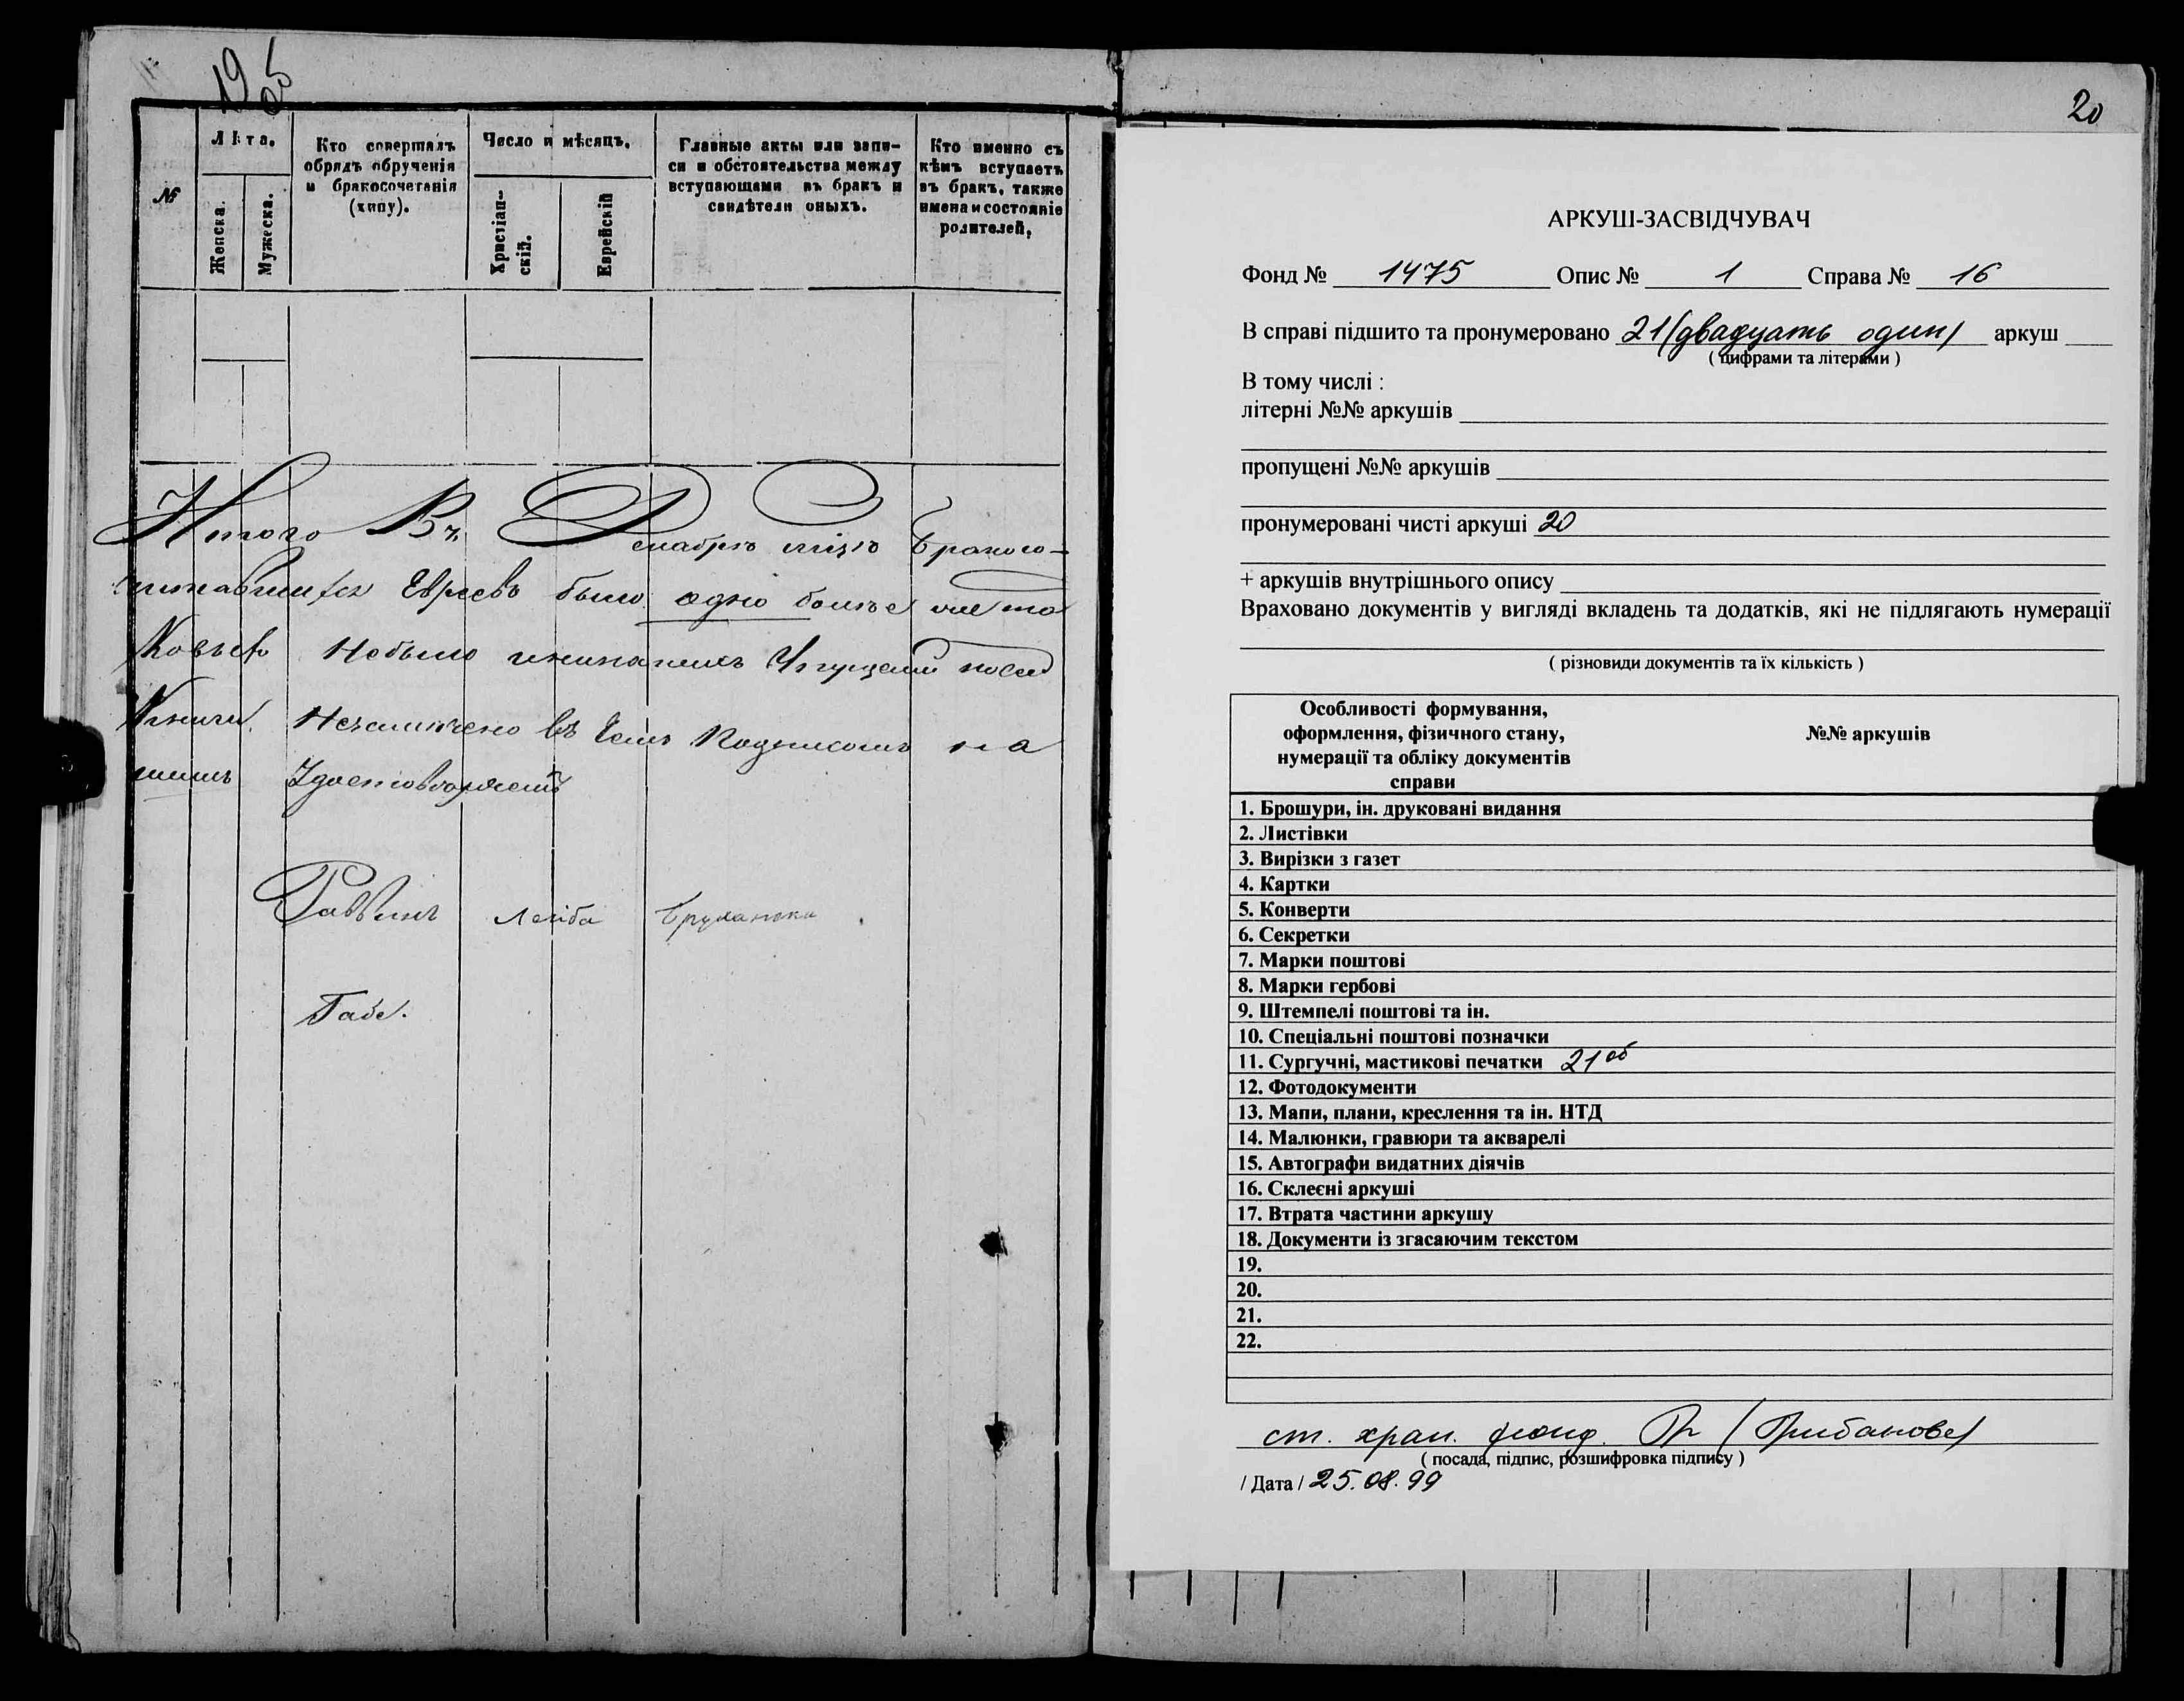 19 об
№
Лѣта.
Женска.
Мужеска.
Кто совершалъ
обрядъ обрученія
и бракосочетанія
(хипу).
Число и мѣсяцъ.
Христіан-
скій.
Еврейскій
Главные акты или запи-
си и обстоятельства между
вступающими въ бракъ и
свидѣтели оныхъ.
Кто именно съ
кѣмъ вступаетъ
въ бракъ, также
имена и состояніе
родителей,
Итого Въ Декабрѣ мцѣ Бракосо-
Евреевъ было одно болѣе
Небыло
Книги Незамичено въ Чемъ Подписомъ на
шимъ
Раввинъ Лейба
20
АРКУШ-ЗАСВІДЧУВАЧ
Фонд № 1475 Опис № 1 Справа № 16
В справі підшито та пронумеровано 21 (двадцать один) аркуш
( цифрами та літерами )
В тому числі :
літерні №№ аркушів
пропущені №№ аркушів
пронумеровані чисті аркуші 20
+ аркушів внутрішнього опису
Враховано документів у вигляді вкладень та додатків, які не підлягають нумерації
( різновиди документів та їх кількість )
Особливості формування,
оформлення, фізичного стану,
нумерації та обліку документів
справи
№№ аркушів
1. Брошури, ін. друковані видання
2. Листівки
3. Вирізки з газет
4. Картки
5. Конверти
6. Секретки
7. Марки поштові
8. Марки гербові
9. Штемпелі поштові та ін.
10. Спеціальні поштові позначки
11. Сургучні, мастикові печатки 21об
12. Фотодокументи
13. Мапи, плани, креслення та ін. НТД
14. Малюнки, гравюри та акварелі
15. Автографи видатних діячів
16. Склеєні аркуші
17. Втрата частини аркушу
18. Документи із згасаючим текстом
19.
20.
21.
22.
ст. хран. фонд.
( посада, підпис, розшифровка підпису )
/ Дата / 25.08.99